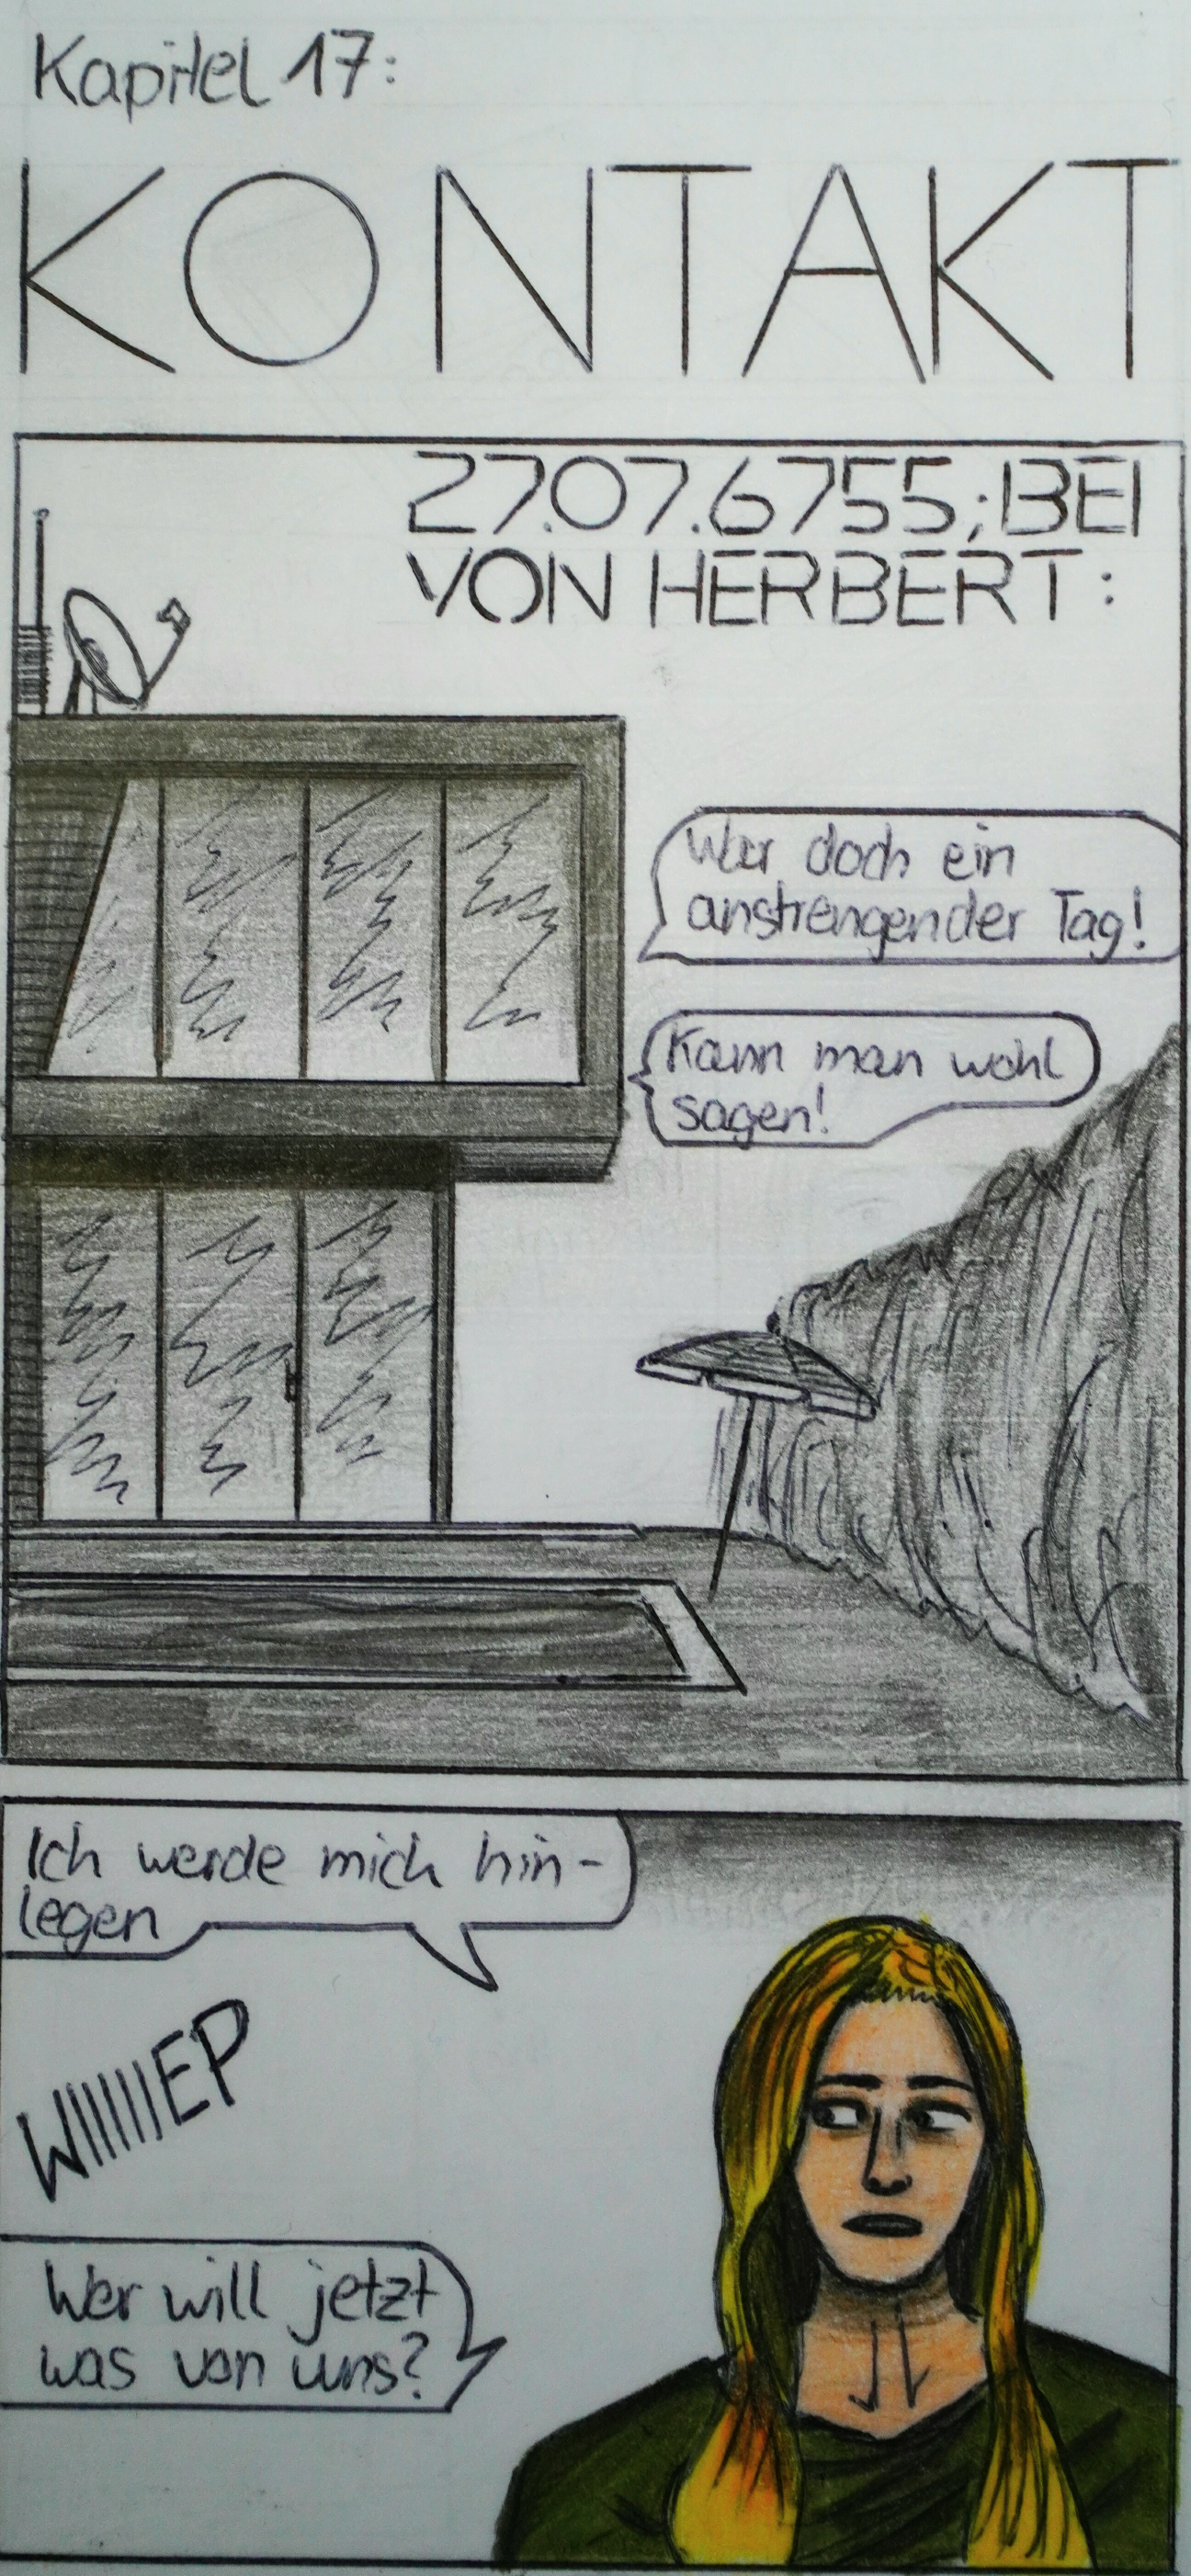 Kapitel 17:
KONTAKT
27.07.6755; BEI
VON HERBERT:
War doch ein
anstrengender Tag!
Kann man wohl
sagen!
Ich werde mich hin-
legen
WIIIIIEP
Wer will jetzt
was von uns?